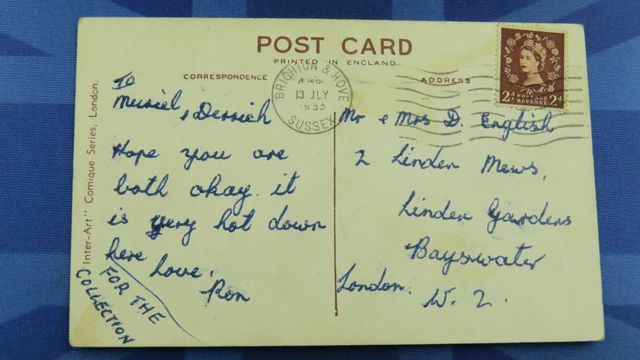 POST CARD
PRINTED IN ENGLAND
CORRESPONDENCE
ADDRESS
"Inter-Art" Comique Series, London.
BRIGHTON & HOVE
13 JLY
SUSSEX
2D POSTAGE REVENUE 2D
To
Muriel, & Derrick
Hope you are
both okay. it
is very hot down
here love.
Ron
FOR THE
COLLECTION
Mr & Mrs D. English
2 Linden Mews,
Linden Gardens
Bayswater
London. W. 2.